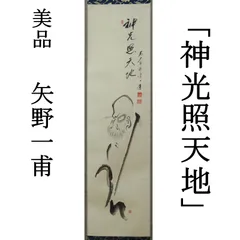 「神光照天地」
神光照天地
美品 矢野一甫